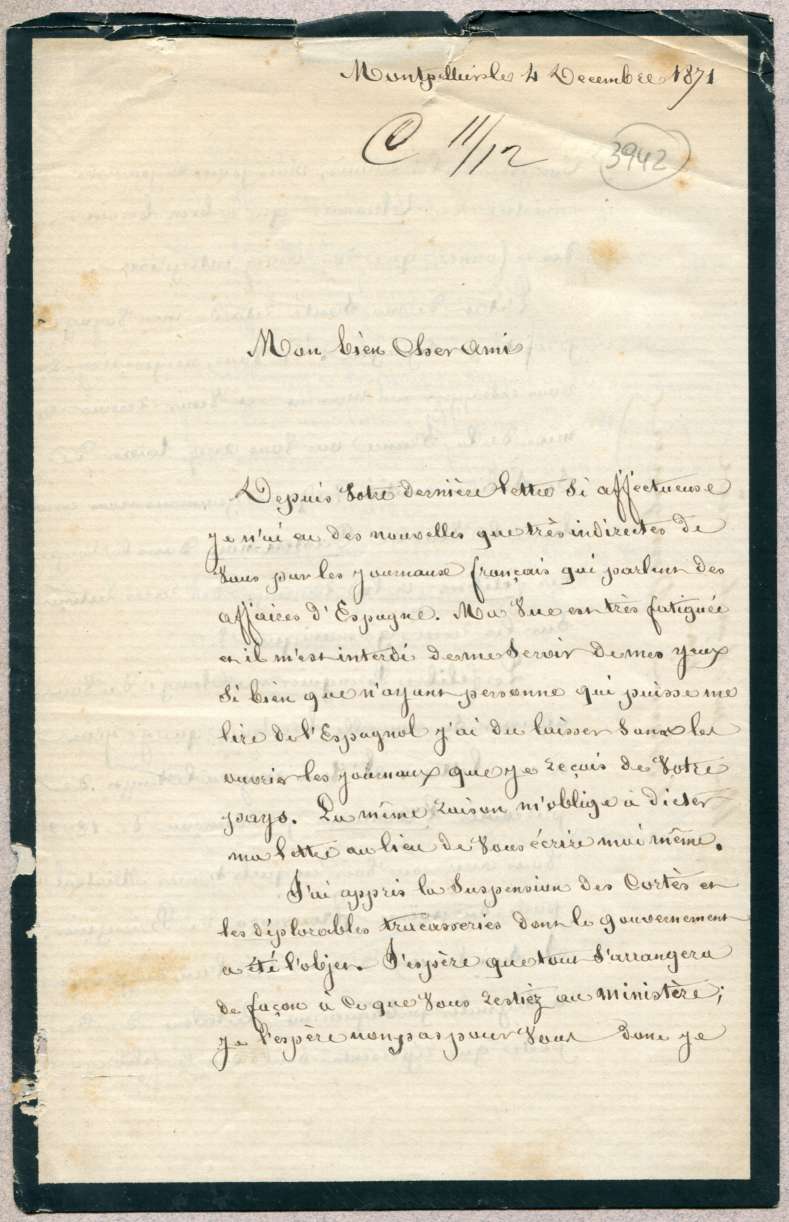 Montpellier le 4 Decembre 1871
C 11/12
3942
Mon bien Cher Ami
Depuis Votre dernière lettre Si affectueuse
je n'ai eu des nouvelles que très indirectes de
Vous par les journaux français qui parlent des
affaires d'Espagne. Ma Vue est très fatiguée
et il m'est interdi de me Servir de mes yeux
Si bien que n'ayant personne qui puisse me
lire de l'Espagnol j'ai du laisser Sans les
ouvrir les journaux que je reçois de Votre
pays. La même raison m'oblige à dicter
ma lettre au lieu de Vous écrire moi même.
J'ai appris la Suspension des Cortès et
les déplorables tracasseries dont le gouvernement
a été l'objet. J'espère que tout S'arrangera
de façon à Ce que Vous restiez au ministère;
je l'espère non pas pour Vous dont je